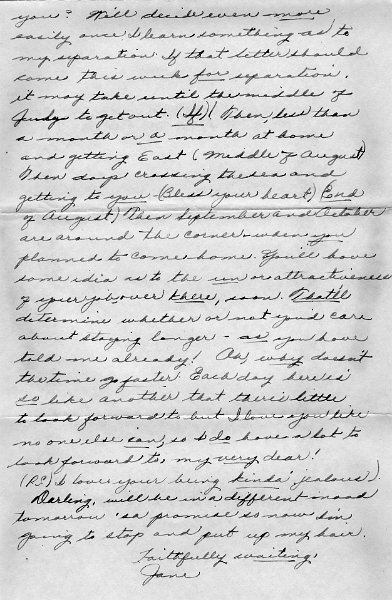 you? Will decide even more
easily once I learn something as to
my separation. If that letter should
come this week for separation,
it may take until the middle of
July to get out. (If)! Then less than
a month or a month at home
and getting East (Middle of August)
Then days crossing the sea and
getting to you (Bless your heart) End
of August) Then September and October
are around the corner - when you
planned to come home. You'll have
some idia as to the un or attractiveness
of your job over there, soon. That'll
determine whether or not you'd care
about staying longer - as you have
told me already! Oh, why doesn't
the time go faster. Each day here is
so like another that there's little
to look forward to but I love you like
no one else can, so I do have a lot to
look forward to, my very dear!
(P.S.) I love your being kinda' jealous).
Darling, will be in a different mood
tomorrow 'sa promise so now I'm
going to stop and put up my hair.
Faithfully waiting,
Jane